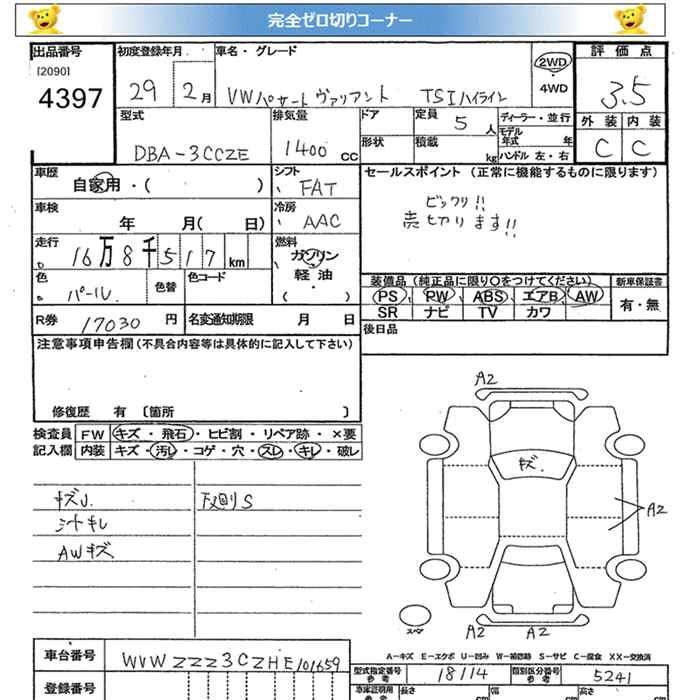 完全ゼロ切りコーナー
出品番号 初度登録年月 車名・グレード 2WD・4WD 評価点
[2090]
4397 29 2月 VWパサートヴァリアント TSIハイライン 3.5
型式 排気量 ドア 定員 5人 ディーラー・並行 外装 内装
モデル年式 年
DBA-3CCZE 1400cc 形状 積載 kg ハンドル 左・右 C C
車歴 シフト セールスポイント (正常に機能するものに限ります)
自家用・( ) FAT
ビックリ!!
車検 冷房 売切ります!!
年 月( 日) AAC
走行 燃料
16万8千517km ガソリン
色 色替 色コード 軽油 装備品 (純正品に限り○をつけてください) 新車保証書
パール ( ) PS PW ABS エアB AW 有・無
SR ナビ TV カワ
R券 17030円 名変通知期限 月 日 後日品
注意事項申告欄 (不具合内容等は具体的に記入して下さい)
修復歴 有 〔箇所 〕
検査員 FW キズ・飛石・ヒビ割・リペア跡・×要
記入欄 内装 キズ・汚レ・コゲ・穴・スレ・キレ・破レ
キズU. 反回りS
シートキレ
AWキズ
A2
キズ.
A2
スペア
A2 A2
A-キズ E-エクボ U-凹み W-補修跡 S-サビ C-腐食 XX-交換済
車台番号 WVWZZZ3CZHE101659 型式指定番号 参考 18114 類別区分番号 参考 5241
登録番号 車庫証明用 参考 長さ cm 幅 cm 高さ cm